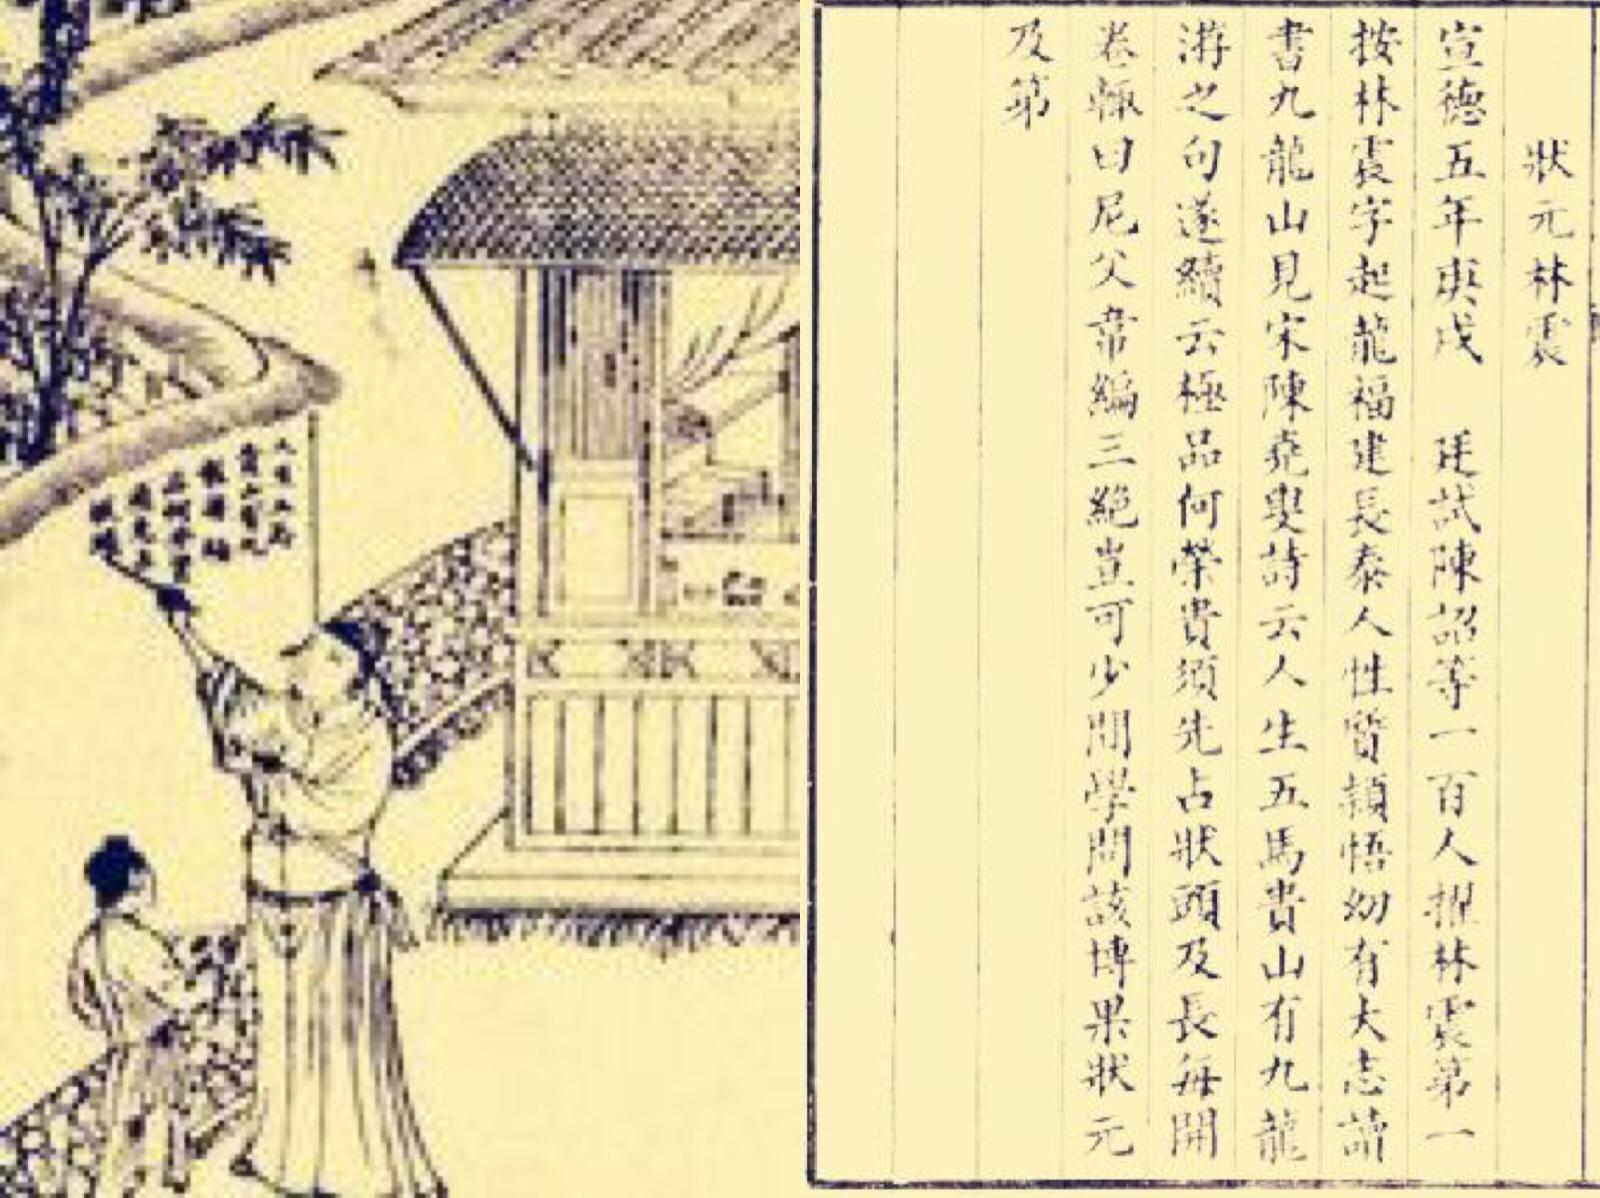 狀元林震
宣德五年庚戌 廷試陳詔等一百人擢林震第一
按林震字起龍福建長泰人性質穎悟幼有大志讀
書九龍山見宋陳堯叟詩云人生五馬貴山有九龍
游之句遂續云極品何榮貴須先占狀頭及長每開
卷輒曰尼父韋編三絕豈可少間學問該博果狀元
及第